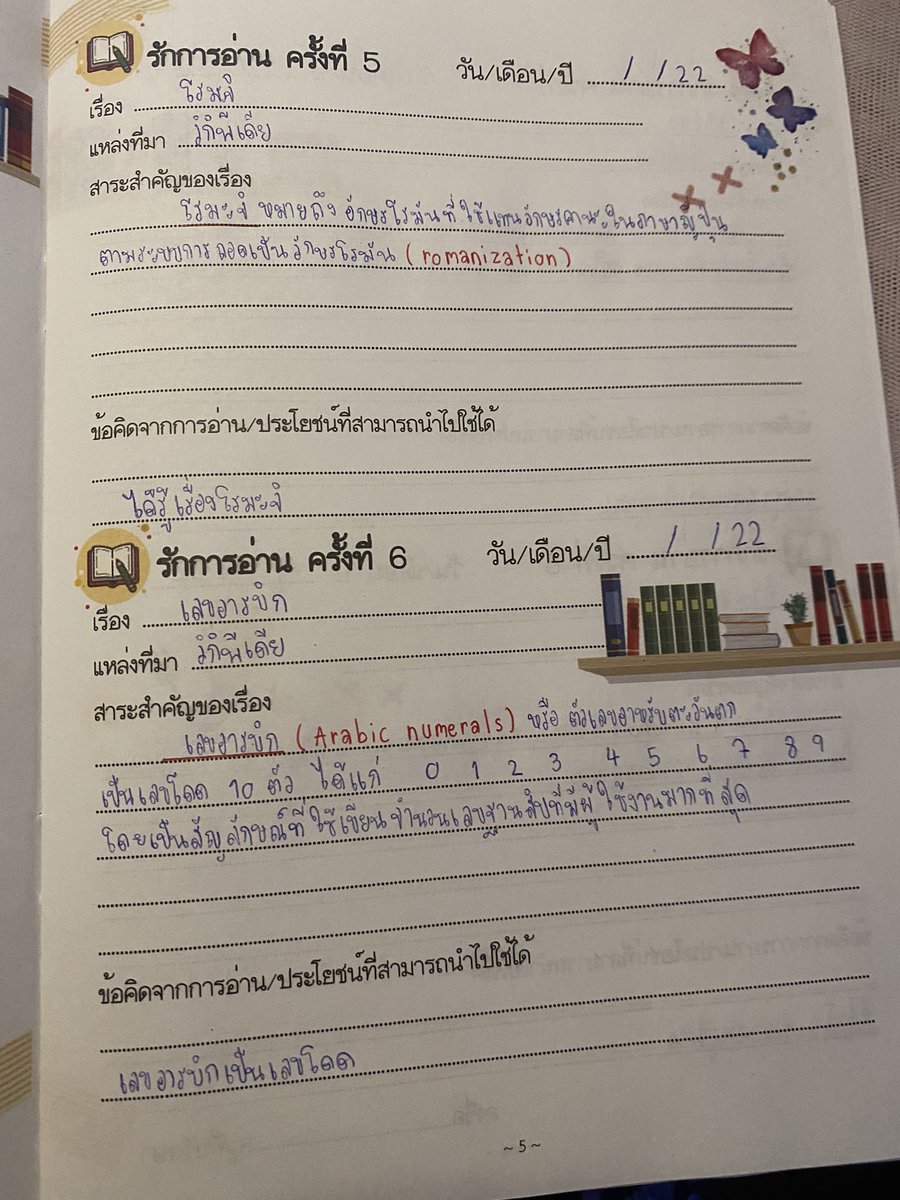 รักการอ่าน ครั้งที่ 5 วัน/เดือน/ปี / / 22
เรื่อง โรมจิ
แหล่งที่มา วิกิพีเดีย
สาระสำคัญของเรื่อง
โรมะจิ หมายถึง อักษรโรมันที่ใช้แทนอักษรคานะในภาษาญี่ปุ่น
ตามระบบการถอดเป็นอักษรโรมัน (romanization)
ข้อคิดจากการอ่าน/ประโยชน์ที่สามารถนำไปใช้ได้
ได้รู้เรื่องโรมะจิ
รักการอ่าน ครั้งที่ 6 วัน/เดือน/ปี / / 22
เรื่อง เลขอารบิก
แหล่งที่มา วิกิพีเดีย
สาระสำคัญของเรื่อง
เลขอารบิก (Arabic numerals) หรือ ตัวเลขอาหรับตะวันตก
เป็นเลขโดด 10 ตัว ได้แก่ 0 1 2 3 4 5 6 7 8 9
โดยเป็นสัญลักษณ์ที่ใช้เขียนจำนวนเลขฐานสิบที่มีผู้ใช้งานมากที่สุด
ข้อคิดจากการอ่าน/ประโยชน์ที่สามารถนำไปใช้ได้
เลขอารบิกเป็นเลขโดด
~ 5 ~